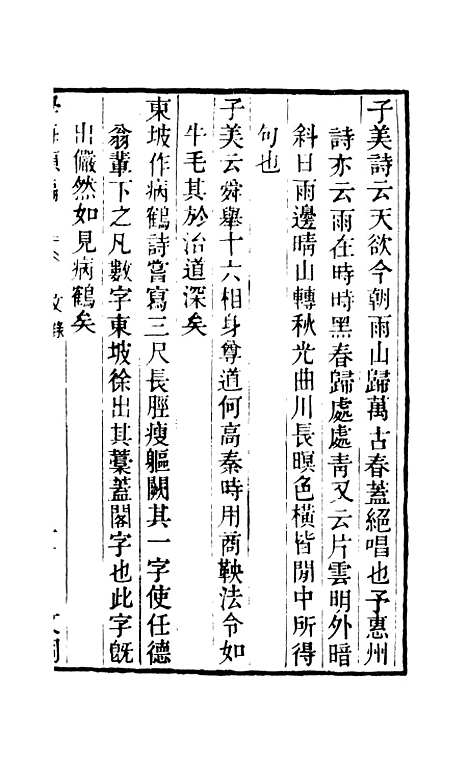 子美詩云天欲今朝雨山歸萬古春蓋絕唱也予惠州
詩亦云雨在時時黑春歸處處青又云片雲明外暗
斜日雨邊晴山轉秋光曲川長暝色橫皆閒中所得
句也
子美云舜舉十六相身尊道何高秦時用商鞅法令如
牛毛其於治道深矣
東坡作病鶴詩嘗寫三尺長脛瘦軀闕其一字使任德
翁輩下之凡數字東坡徐出其藁蓋閣字也此字旣
出儼然如見病鶴矣